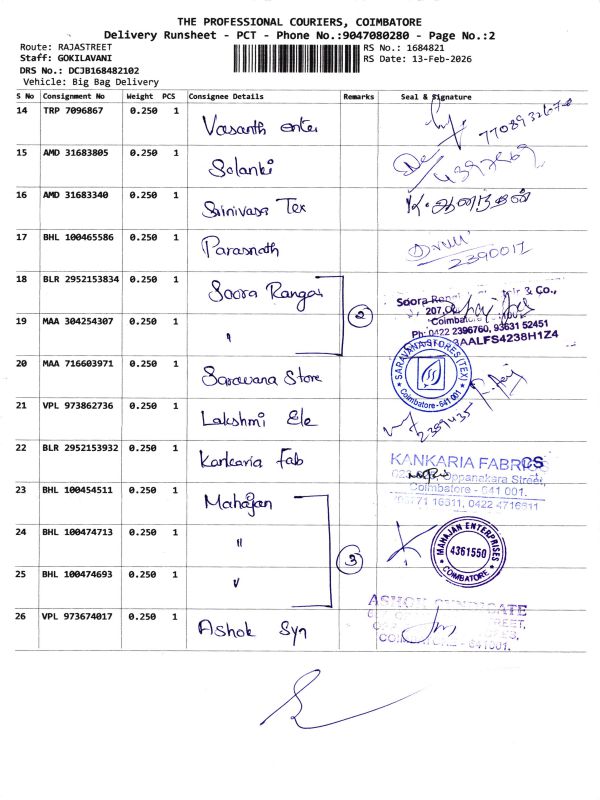 THE PROFESSIONAL COURIERS, COIMBATORE
Delivery Runsheet - PCT - Phone No.:9047080280 - Page No.:2
Route: RAJASTREET
RS No.: 1684821
Staff: GOKILAVANI
RS Date: 13-Feb-2026
DRS No.: DCJB168482102
Vehicle: Big Bag Delivery
S No Consignment No Weight PCS Consignee Details Remarks Seal & Signature
14 TRP 7096867 0.250 1 Vasanth enter
15 AMD 31683805 0.250 1 Solanki
16 AMD 31683340 0.250 1 Srinivasa Tex K. ஆனந்தன்
17 BHL 100465586 0.250 1 Parasnath 2390017
18 BLR 2952153834 0.250 1 Soora Rangas
Soora & Co.,
207,
19 MAA 304254307 0.250 1 " 2
Coimbatore
Ph: 0422 2396760, 93631 52451
AALFS4238H1Z4
20 MAA 716603971 0.250 1 Saravana Store
SARAVANA STORES (TEX)
Coimbatore - 641 001.
21 VPL 973862736 0.250 1 Lakshmi Ele
22 BLR 2952153932 0.250 1 Kankaria Fab
KANKARIA FABRICS
Oppanakara Street,
Coimbatore - 641 001.
0422 4716511
23 BHL 100454511 0.250 1 Mahajan
24 BHL 100474713 0.250 1 " 3
MAHAJAN ENTERPRISES
4361550
COIMBATORE
25 BHL 100474693 0.250 1 "
26 VPL 973674017 0.250 1 Ashok Syn
ASHOK SYNDICATE
STREET,
641001.